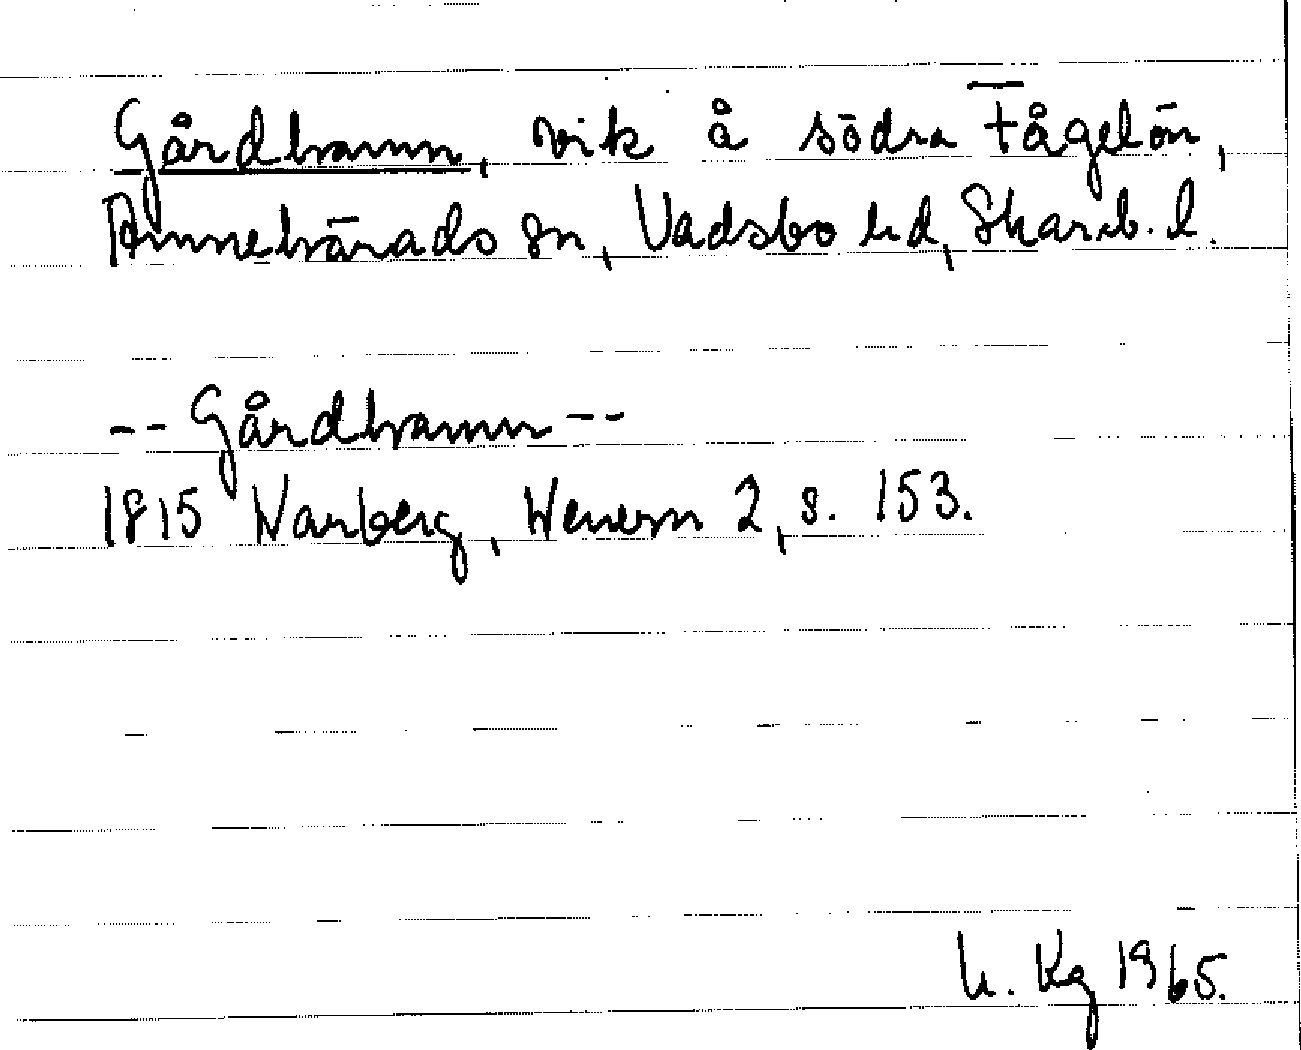 Gårdhamn, vik å södra Fågelön,
Amnehärads sn, Vadsbo hd, Skarab. l.
-- Gårdhamn --
1815 Warberg, Wenern 2, s. 153.
U. Kg 1965.